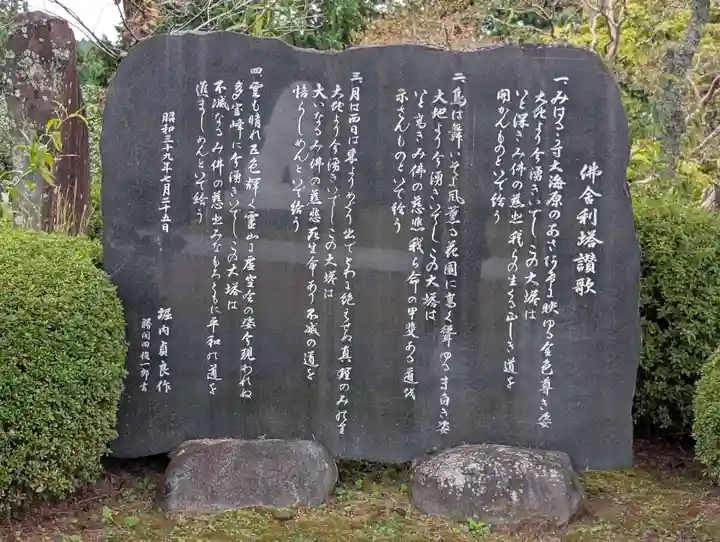 佛舎利塔讃歌
一、みはるかす大海原のあさぼらけに映ゆる金色尊き姿
大地より今湧きいでしこの大塔は
いと深きみ佛の慈悲我らの生くる正しき道を
開かんものといで給う
二、鳥は舞いそよ風薫る花園に高く聳ゆるま白き姿
大地より今湧きいでしこの大塔は
いと高きみ佛の慈悲我ら命の甲斐ある道を
示さんものといで給う
三、月は西日は東よりめぐり出でとわに絶ゆせぬ真理のみのり
大地より今湧きいでしこの大塔は
大いなるみ佛の慈悲死生命あり不滅の道を
悟らしめんといで給う
四、雲も晴れ五色輝く霊山に虚空会の姿今現われぬ
多宝峰に今湧きいでしこの大塔は
不滅なるみ佛の慈悲みなもろともに平和の道を
進ましめんといで給う
昭和三十九年七月二十五日
堀内貞良作
勝間田稔一郎書